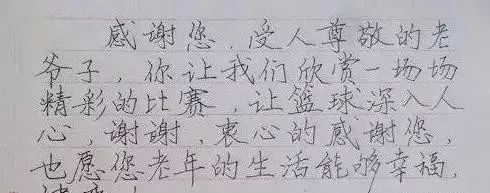 感谢您，受人尊敬的老
爷子，你让我们欣赏一场场
精彩的比赛，让篮球深入人
心，谢谢，衷心的感谢您，
也愿您老年的生活能够幸福，